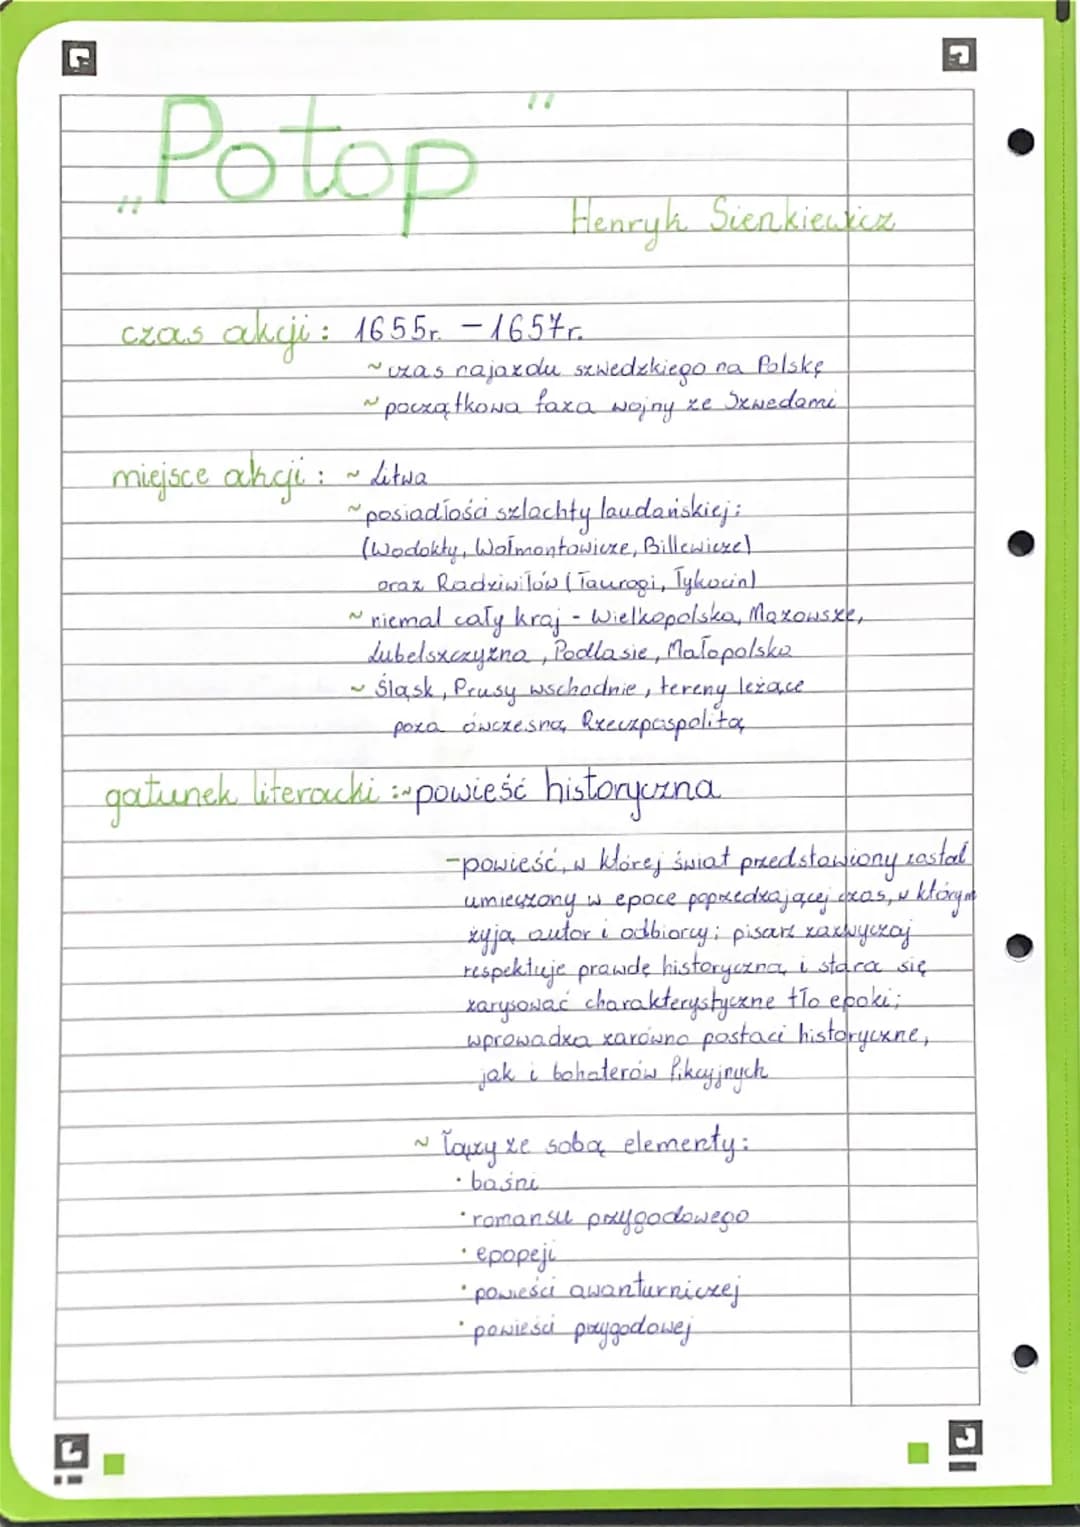 „Potop"
Henryk Sienkiewicz
czas akcji: 1655r. - 1657r.
~ czas najazdu szwedzkiego na Polskę
~ początkowa faza wojny ze Szwedami
miejsce akcji: ~ Litwa
~ posiadłości szlachty laudańskiej:
(Wodokty, Wołmontowicze, Billewicze)
oraz Radziwiłów (Taurogi, Tykocin)
~ niemal cały kraj - Wielkopolska, Mazowsze,
Lubelszczyzna, Podlasie, Małopolska
~ Śląsk, Prusy wschodnie, tereny leżące
poza ówczesną Rzeczpospolitą
gatunek literacki: ~ powieść historyczna
- powieść, w której świat przedstawiony został
umieszony w epoce poprzedzającej czas, w którym
żyją autor i odbiorcy; pisarz zazwyczaj
respektuje prawdę historyczną i stara się
zarysować charakterystyczne tło epoki;
wprowadza zarówno postaci historyczne,
jak i bohaterów fikcyjnych
~ łączy ze sobą elementy:
· baśni
· romansu przygodowego
· epopeji
· powieści awanturniczej
· powieści przygodowej